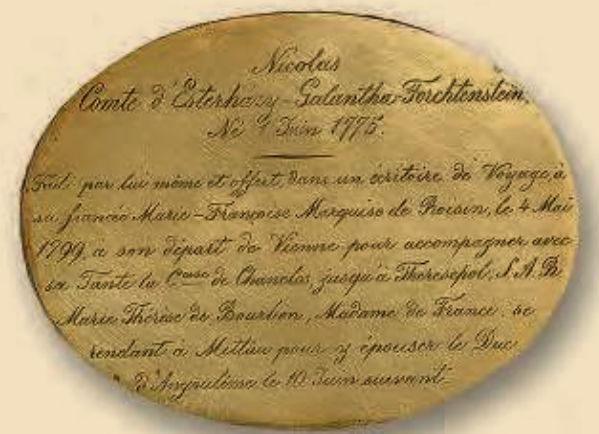 Nicolas
Comte d'Esterhazy-Galantha-Forchtenstein,
Né 7 Juin 1775.
Fait par lui même et offert, dans un écritoire de Voyage, à
sa fiancée Marie-Françoise Marquise de Roisin, le 4 Mai
1799, à son départ de Vienne pour accompagner avec
sa Tante la Ctesse de Chanclos, jusqu'à Theresepol, S.A.R.
Marie Thérèse de Bourbon, Madame de France, se
rendant à Mittau pour y épouser le Duc
d'Angoulême le 10 Juin suivant.